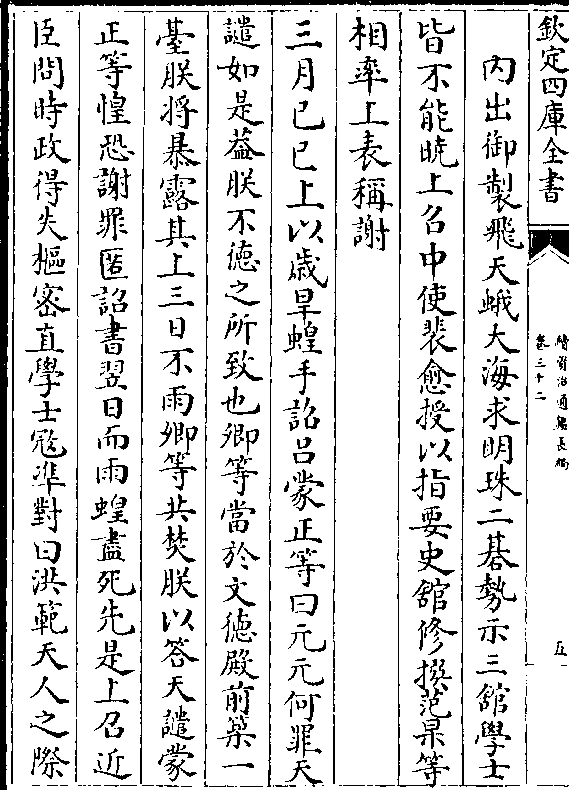 欽定四庫全書
續資治通鑑長編
卷三十二
五
內出御製飛天蛾大海求明珠二碁勢示三館學士
皆不能曉上召中使裴愈授以指要史館修撰范杲等
相率上表稱謝
三月己巳上以歲旱蝗手詔呂蒙正等曰元元何罪天
譴如是葢朕不德之所致也卿等當於文德殿前築一
臺朕將暴露其上三日不雨卿等共焚朕以答天譴蒙
正等惶恐謝罪匿詔書翌日而雨蝗盡死先是上召近
臣問時政得失樞密直學士寇準對曰洪範天人之際